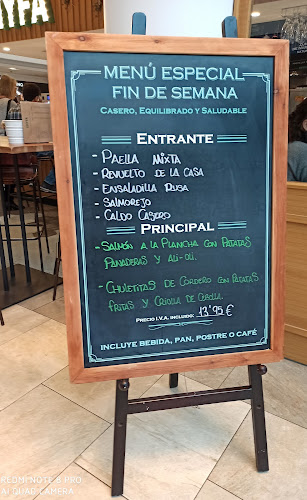 MENÚ ESPECIAL
FIN DE SEMANA
CASERO, EQUILIBRADO Y SALUDABLE
ENTRANTE
- PAELLA MIXTA
- REVUELTO DE LA CASA
- ENSALADILLA RUSA
- SALMOREJO
- CALDO CASERO
PRINCIPAL
- SALMÓN A LA PLANCHA CON PATATAS
PANADERAS Y ALI-OLI.
- CHULETITAS DE CORDERO CON PATATAS
FRITAS Y CRIOLLA DE CEBOLLA.
PRECIO I.V.A. INCLUIDO: 13'95 €
INCLUYE BEBIDA, PAN, POSTRE O CAFÉ
REDMI NOTE 8 PRO
AI QUAD CAMERA